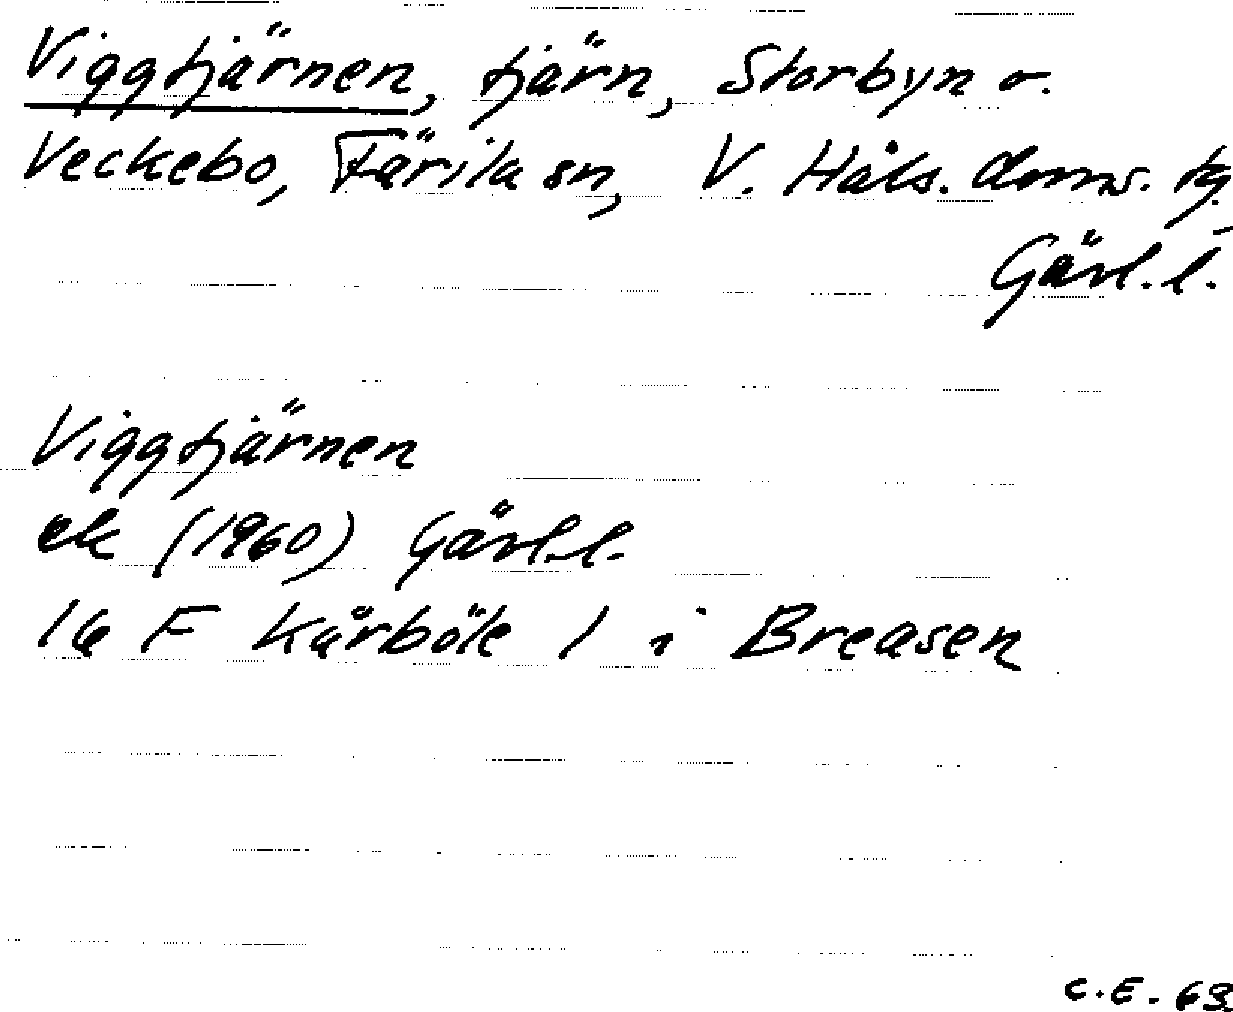 Viggtjärnen, tjärn, Storbyn o.
Veckebo, Färila sn, V. Häls. doms. tg
Gävl. l.
Viggtjärnen
ek (1960) Gävl.l.
16 F Kårböle 1 i Breasen
C.E. 63